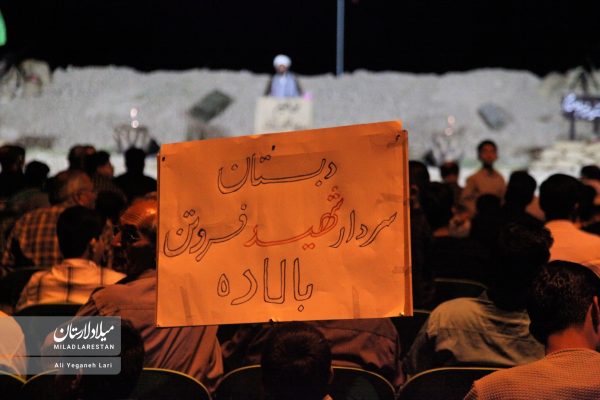 دبستان
سردار شهید فروتن
بالاده
میلاد لارستان
MILAD LARESTAN
Ali Yeganeh Lari